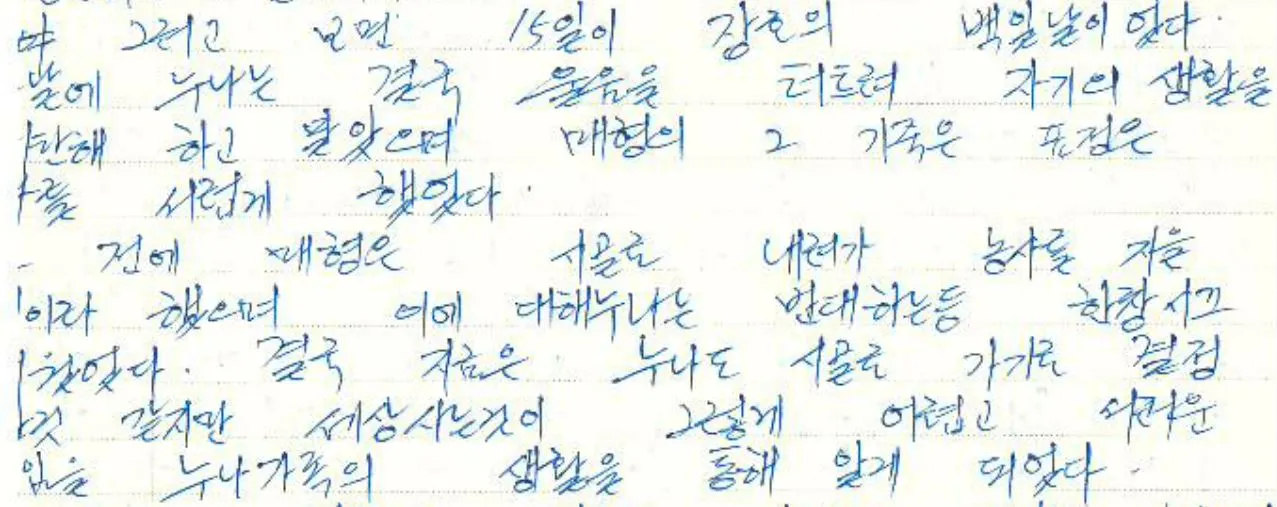 야 그러고 보면 15일이 장호의 백일날이 었다.
날에 누나는 결국 울음을 터트려 자기의 생활을
탄해 하고 말았으며 매형의 그 기죽은 표정은
를 서럽게 했었다.
전에 매형은 시골로 내려가 농사를 지을
이라 했으며 이에 대해누나는 반대하는등 한창시끄
러웠었다. 결국 지금은 누나도 시골로 가기로 결정
것 같지만 세상사는것이 그렇게 어렵고 서러운
있음을 누나가족의 생활을 통해 알게 되었다.